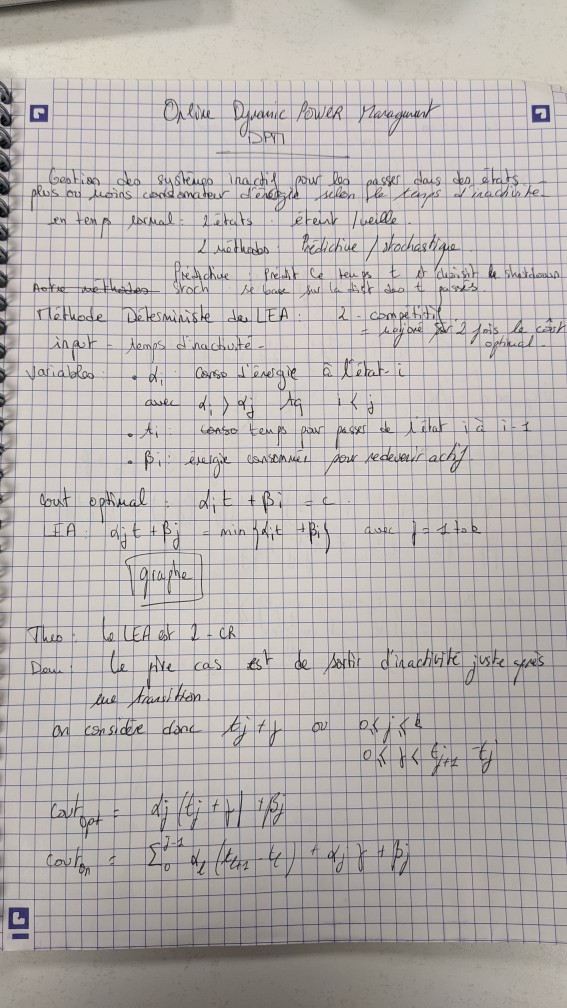 Online Dynamic Power Managment
DPM
Gestion des systèmes inactif pour les passer dans des états
plus ou moins consomateur d'énergie selon le temps d'inactivité
en temps normal : 2 états éteint / veille
2 méthodes : Prédictive / stochastique
Prédictive : Prédit le temps t et choisit le shutdown
Autre methodes Stoch se base sur la dist des t passés.
Méthode Déterministe de LEA : 2 - compétitif
= majoré par 2 fois le coût
input = temps d'inactivité - optimal.
Variables : • αi : conso d'énergie à l'état i
avec αi > αj tq i < j
• ti : conso temps pour passer de l'état i à i-1
• βi : énergie consommée pour redevenir actif.
Cout optimal : αi t + βi = c
LEA : αj t + βj = min {αi t + βi} avec j = 1 to k
graphe
Theo : le LEA est 2 - CR
Dem : Le pire cas est de sortir d'inactivité juste après
une transition.
on considère donc tj + γ ou 0 ⩽ j ⩽ k
0 ⩽ γ < tj+1 - tj
Cout opt = αj (tj + γ) + βj
Cout on = Σ 0 j-1 αl (tl+1 - tl) + αj γ + βj